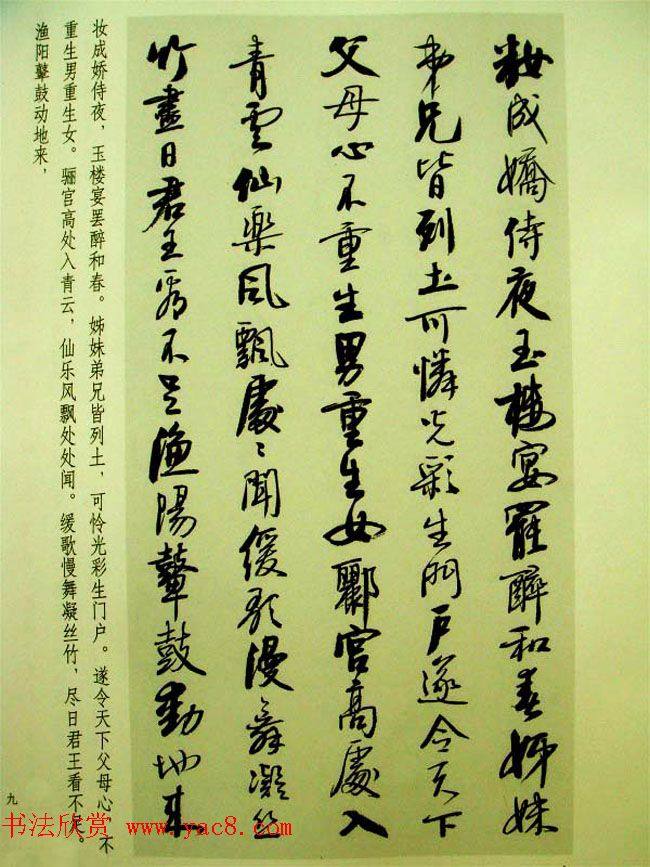 妝成嬌侍夜玉樓宴罷醉和春姊妹
弟兄皆列土可憐光彩生門戶遂令天下
父母心不重生男重生女酈宮高處入
青雲仙樂風飄處〻聞緩歌漫舞凝丝
竹盡日君王看不足漁陽鼙鼓動地来
妆成娇侍夜，玉楼宴罢醉和春。姊妹弟兄皆列土，可怜光彩生门户。遂令天下父母心，不
重生男重生女。骊宫高处入青云，仙乐风飘处处闻。缓歌慢舞凝丝竹，尽日君王看不足。
渔阳鼙鼓动地来，
九
书法欣赏 www.yac8.com